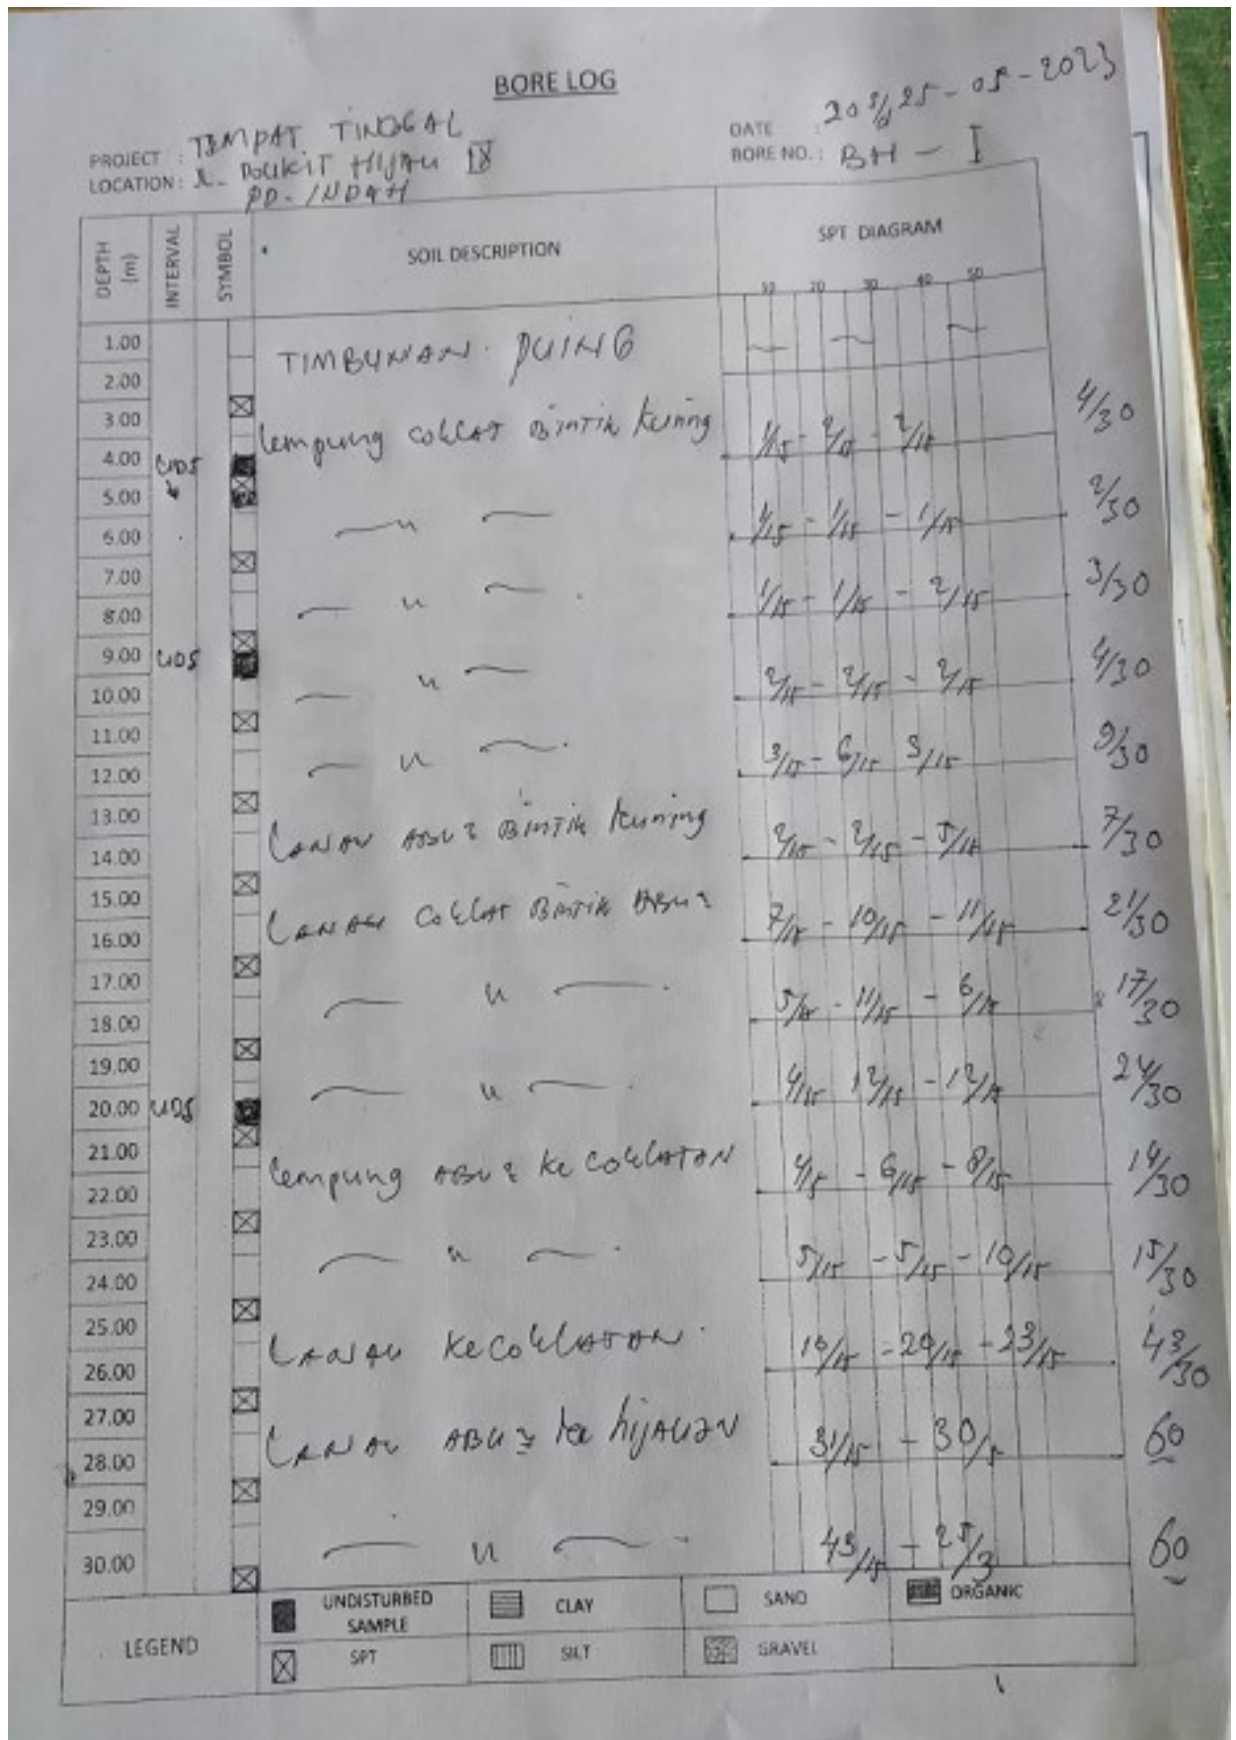 BORE LOG
PROJECT : TEMPAT TINGGAL
LOCATION : BUKIT HIJAU IX
PD. INDAH
DATE : 20 25 - 05 - 2023
BORE NO. : BH - I
DEPTH (m) INTERVAL SYMBOL SOIL DESCRIPTION SPT DIAGRAM
10 20 30 40 50
1.00 TIMBUNAN. PUING
2.00
3.00 Lempung COKLAT BINTIK Kuning 1/15 - 2/15 - 2/15 4/30
4.00 UDS
5.00 — " — 1/15 - 1/15 - 1/15 2/30
6.00
7.00 — " — 1/15 - 1/15 - 2/15 3/30
8.00
9.00 UDS — " — 2/15 - 2/15 - 2/15 4/30
10.00
11.00 — " — 3/15 - 6/15 3/15 9/30
12.00
13.00 LANAU ABU2 BINTIK Kuning 2/15 - 2/15 - 5/15 7/30
14.00
15.00 LANAU COKLAT BINTIK ABU2 7/15 - 10/15 - 11/15 21/30
16.00
17.00 — " — 5/15 - 11/15 - 6/15 17/30
18.00
19.00 — " — 4/15 - 12/15 - 12/15 24/30
20.00 UDS
21.00 Lempung ABU2 KeCOKLATAN 4/15 - 6/15 - 8/15 14/30
22.00
23.00 — " — 5/15 - 5/15 - 10/15 15/30
24.00
25.00 LANAU KeCOKLATAN 20/15 - 23/15 43/30
26.00
27.00 LANAU ABU2 ke hijAUAN 31/15 - 30/5 60
28.00
29.00 — " — 43/15 - 25/3 60
30.00
LEGEND
UNDISTURBED SAMPLE CLAY SAND ORGANIC
SPT SILT GRAVEL